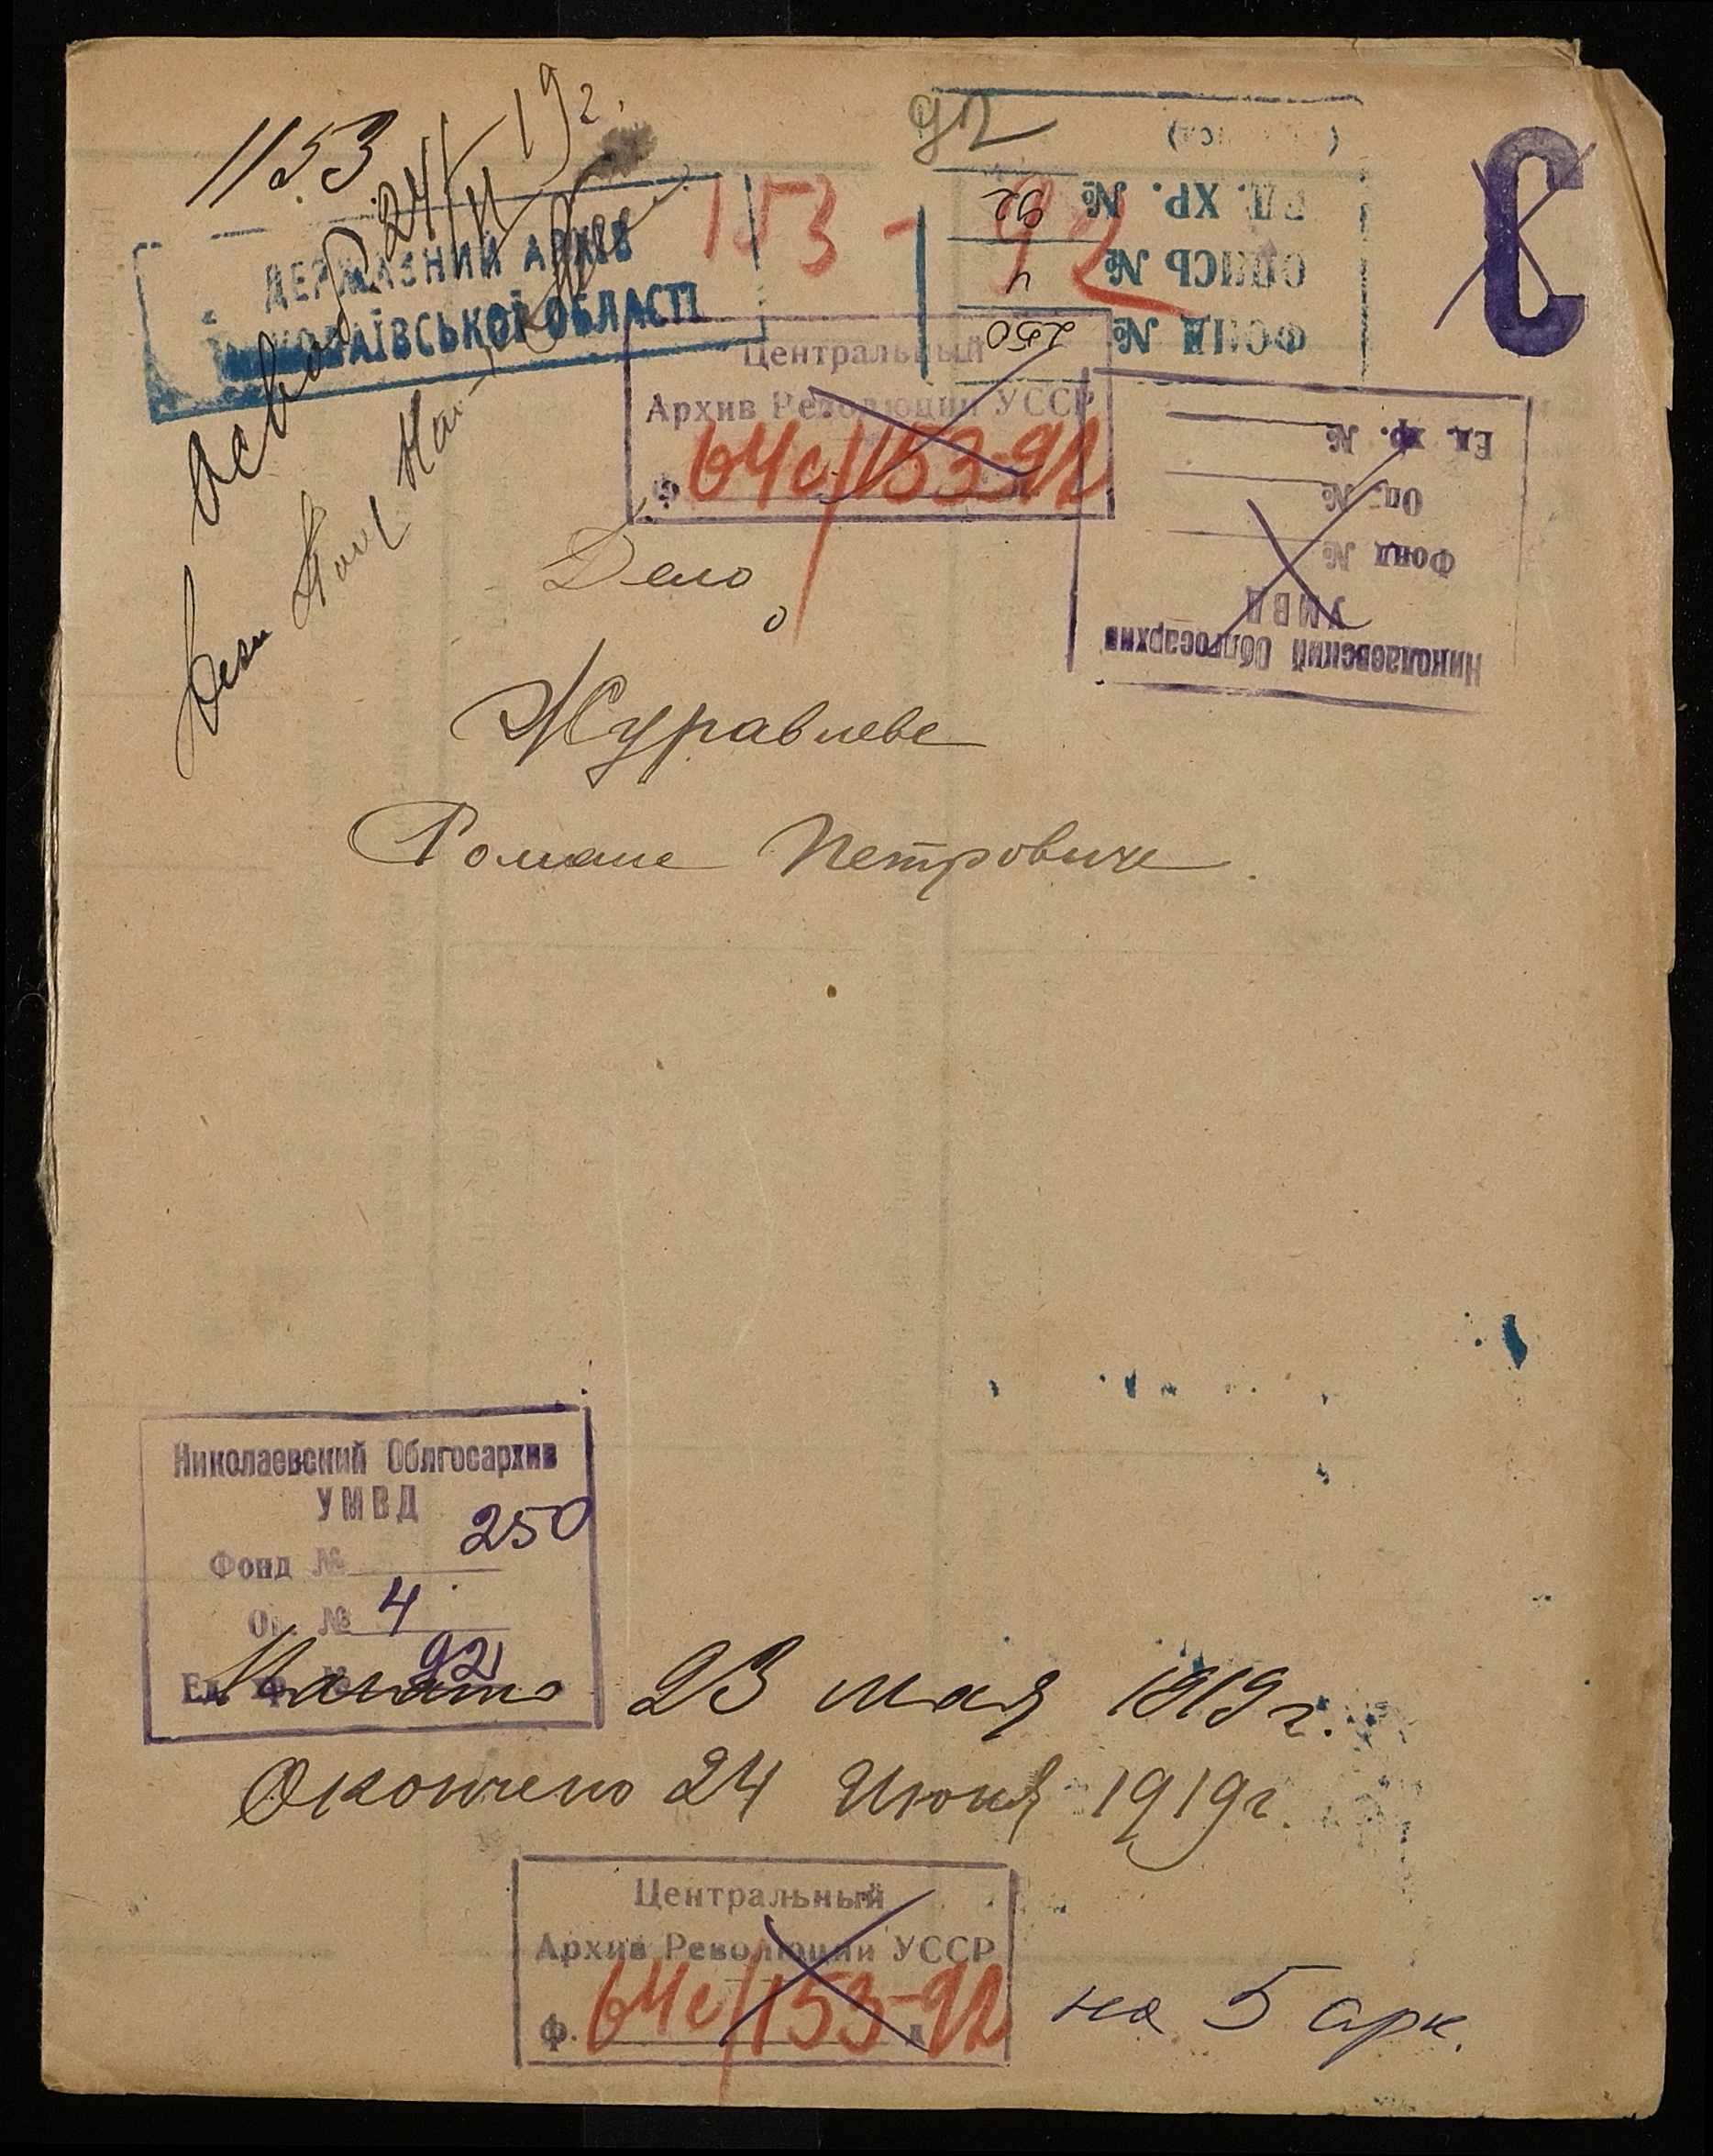 1153
92
153-92
ДЕРЖАВНИЙ АРХІВ
МИКОЛАЇВСЬКОЇ ОБЛАСТІ
ЕД. ХР. № 92
ОПИСЬ № 4
ФОНД № 250
С
Центральный
Архив Революции УССР
Ф. 64с/153-92
Ед. хр. №
Оп. №
Фонд №
УМВД
Николаевский Облгосархив
освобод. 24/II 19 г.
Дело
о
Журавлеве
Романе Петровиче.
Николаевский Облгосархив
УМВД
Фонд № 250
Оп. № 4
Ед. хр. № 92
Начато 23 мая 1919 г.
Окончено 24 Июня 1919 г.
Центральный
Архив Революции УССР
Ф. 64с/153-92
на 5 арк.